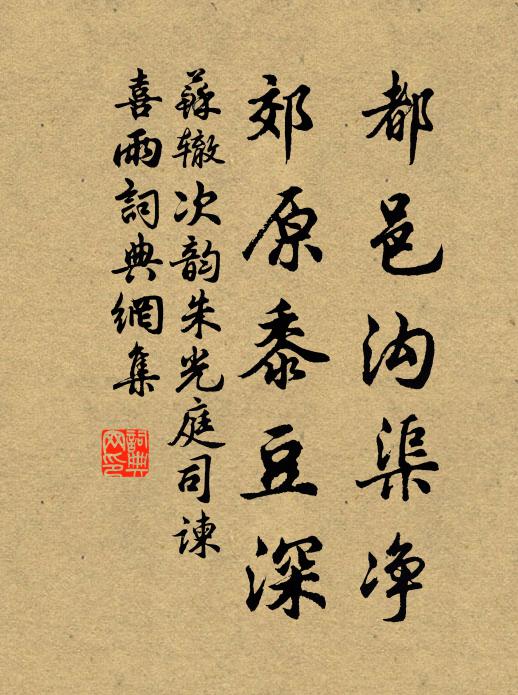 都邑沟渠净
郊原黍豆深
蘇辙次韵朱光庭司谏
喜雨詞典網集
詞典网印